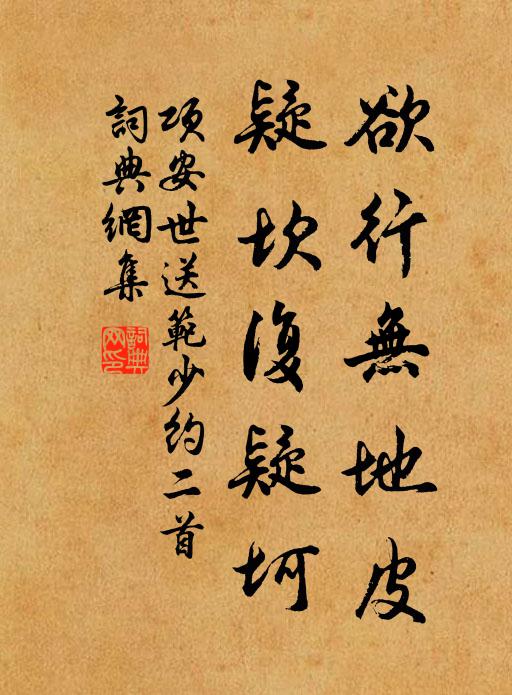 欲行無地皮
疑坎復疑坷
項安世送範少約二首
詞典網集
詞典網印